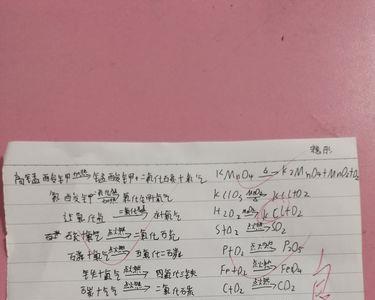 高锰酸钾 加热→ 锰酸钾+二氧化锰+氧气 KMnO4 △→ K2MnO4+MnO2+O2
氯酸钾 二氧化锰 加热→ 氯化钾+氧气 KClO3 MnO2 △→ KCl+O2
过氧化氢 二氧化锰→ 水+氧气 H2O2 MnO2→
硫+氧气 点燃→ 二氧化硫 S+O2 点燃→ SO2
+氧气 点燃→ 五氧化二 P+O2 点燃→ P2O5
+氧气 点燃→ 四氧化三铁 Fe+O2 点燃→ FeO4
碳+氧气 点燃→ 二氧化碳 C+O2 点燃→ CO2